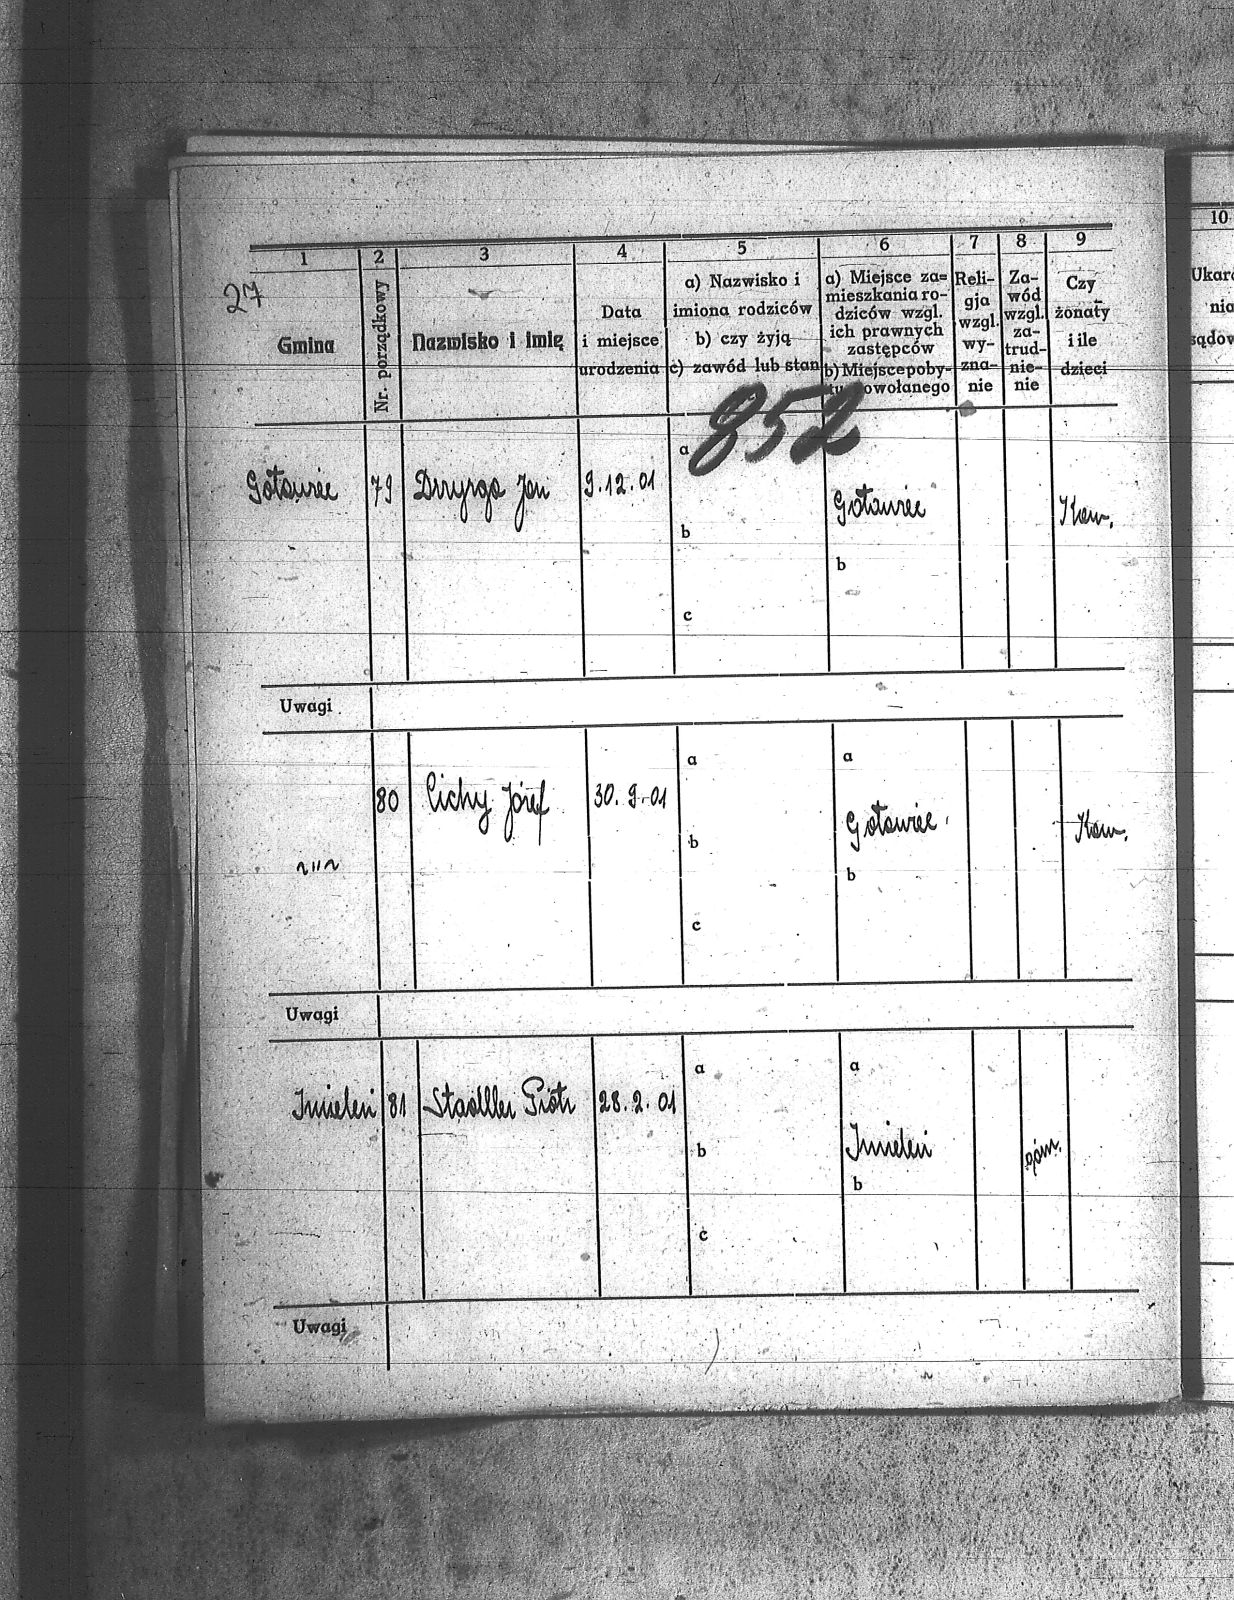 27
1 2 3 4 5 6 7 8 9 10
Gmina
Nr. porządkowy
Nazwisko i imię
Data
i miejsce
urodzenia
a) Nazwisko i
imiona rodziców
b) czy żyją
c) zawód lub stan
a) Miejsce za=
mieszkania ro-
dziców wzgl.
ich prawnych
zastępców
b) Miejsce poby-
powołanego
Reli-
gja
wzgl.
wy-
zna-
nie
Za-
wód
wzgl.
za-
trud-
nie-
nie
Czy
żonaty
i ile
dzieci
852
79 9.12.01
a
b
c
b
Uwagi
80 Cichy Józef 30.9.01
a
b
c
a
b
Uwagi
Imieleń 81 Stadller Piotr 28.2.01
a
b
c
a
Imieleń
b
górn.
Uwagi